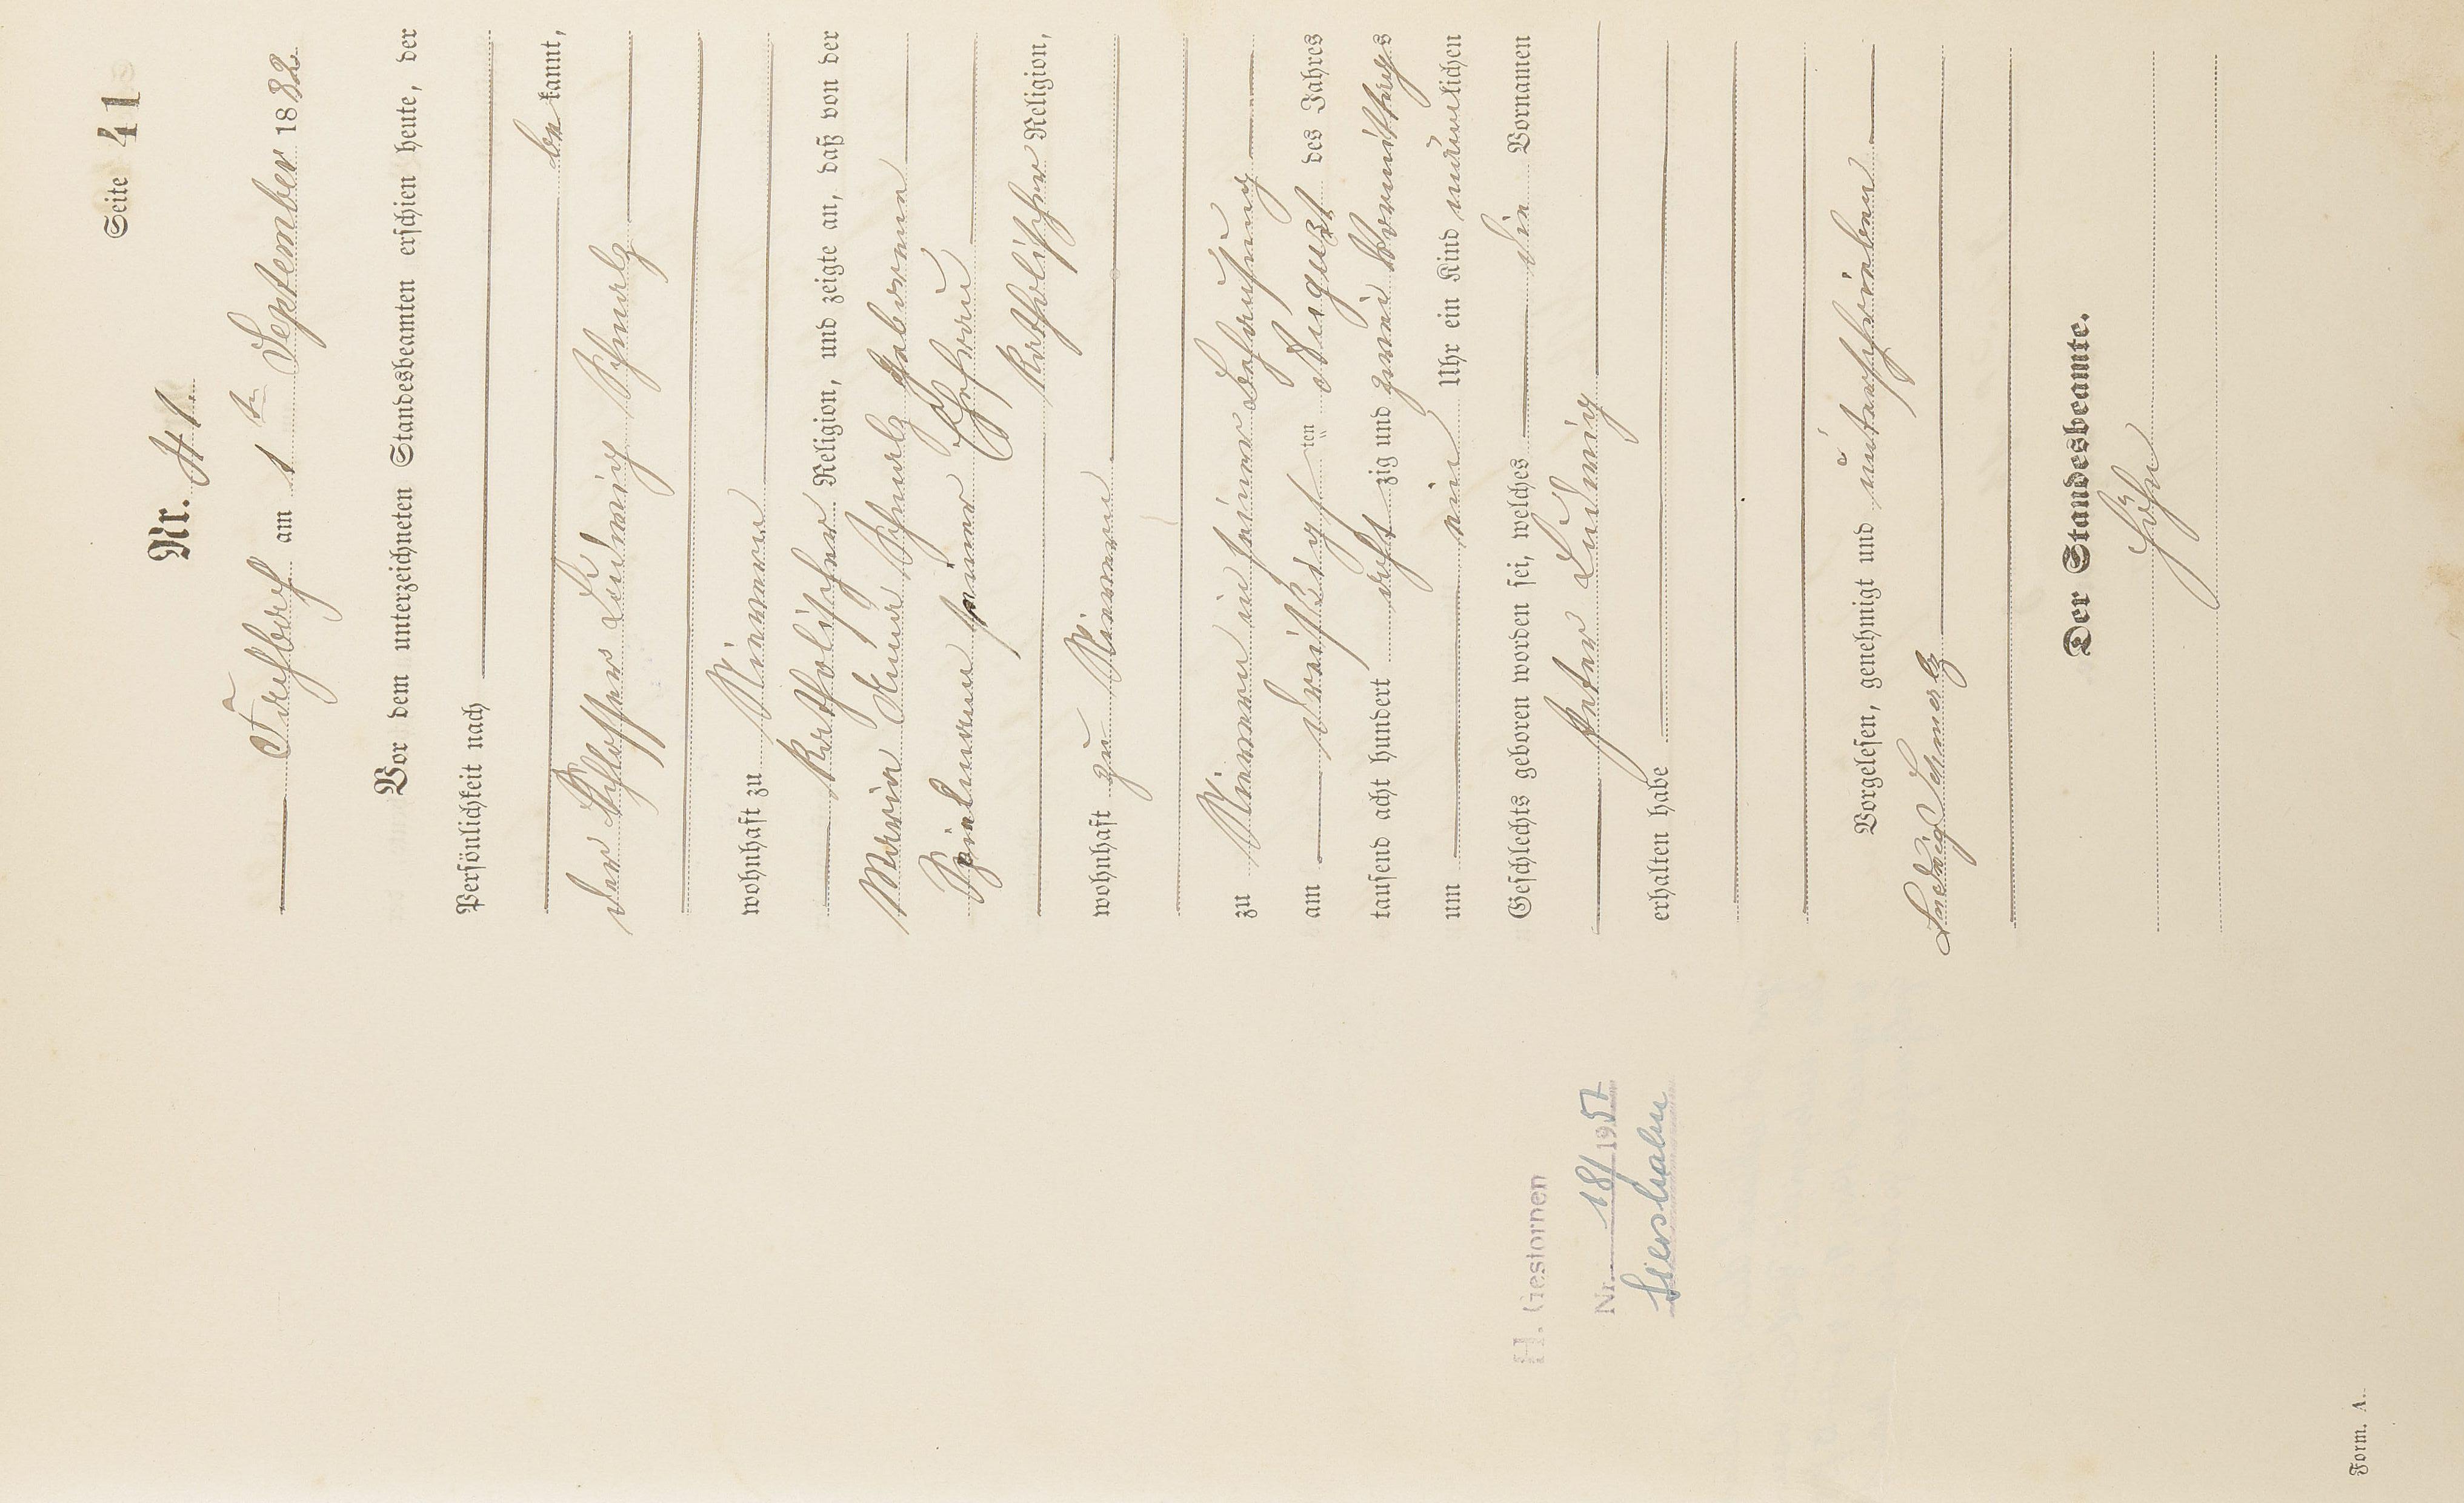 Seite 41
Nr. 41.
Fachbach am 1ten September 1882
Vor dem unterzeichneten Standesbeamten erschien heute, der
Persönlichkeit nach
bekannt,
der Schlosser Ludwig Schmalz
wohnhaft zu Nievern
katholischer Religion, und zeigte an, daß von der
Maria Anna Schmalz geborene
Spielmann seiner Ehefrau
katholischer Religion,
wohnhaft zu Nievern
zu Nievern in seiner Behausung
am dreißigsten August des Jahres
tausend acht hundert achtzig und zwei Vormittags
um ein Uhr ein Kind männlichen
Geschlechts geboren worden sei, welches die Vornamen
Peter Ludwig
erhalten habe
Vorgelesen, genehmigt und unterschrieben
Ludwig Schmalz
Der Standesbeamte.
Höhn
H. Gestorben
Nr. 18/1957
Siershahn
Form. A.